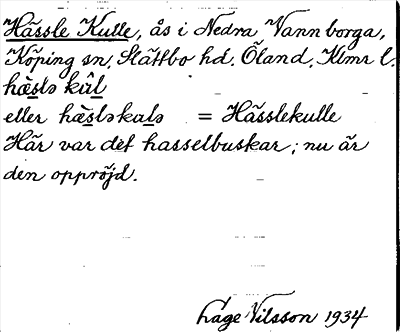 Hässle Kulle, ås i Nedra Vannborga,
Köping sn. Slättbo hd. Öland, Klmr l.
hæ̀slə kûl
eller hæ̀sləkalə = Hässlekulle
Här var det hasselbuskar; nu är
den oppröjd.
Låge Nilsson 1934